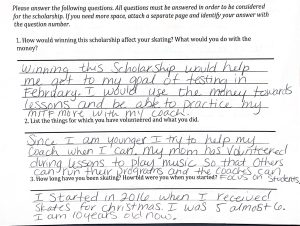 Please answer the following questions. All questions must be answered in order to be considered
for the scholarship. If you need more space, attach a separate page and identify your answer with
the question number.
1. How would winning this scholarship affect your skating? What would you do with the
money?
Winning this Scholarship would help
me get to my goal of testing in
February. I would use the money towards
lessons and be able to practice my
MITF more with my coach.
2. List the things for which you have volunteered and what you did.
Since I am younger I try to help my
coach when I can. my mom has volunteered
during lessons to play music so that others
can run their programs and the coaches can
focus on students.
3. How long have you been skating? How old were you when you started?
I started in 2016 when I received
skates for christmas. I was 5 almost 6.
I am 10 years old now.